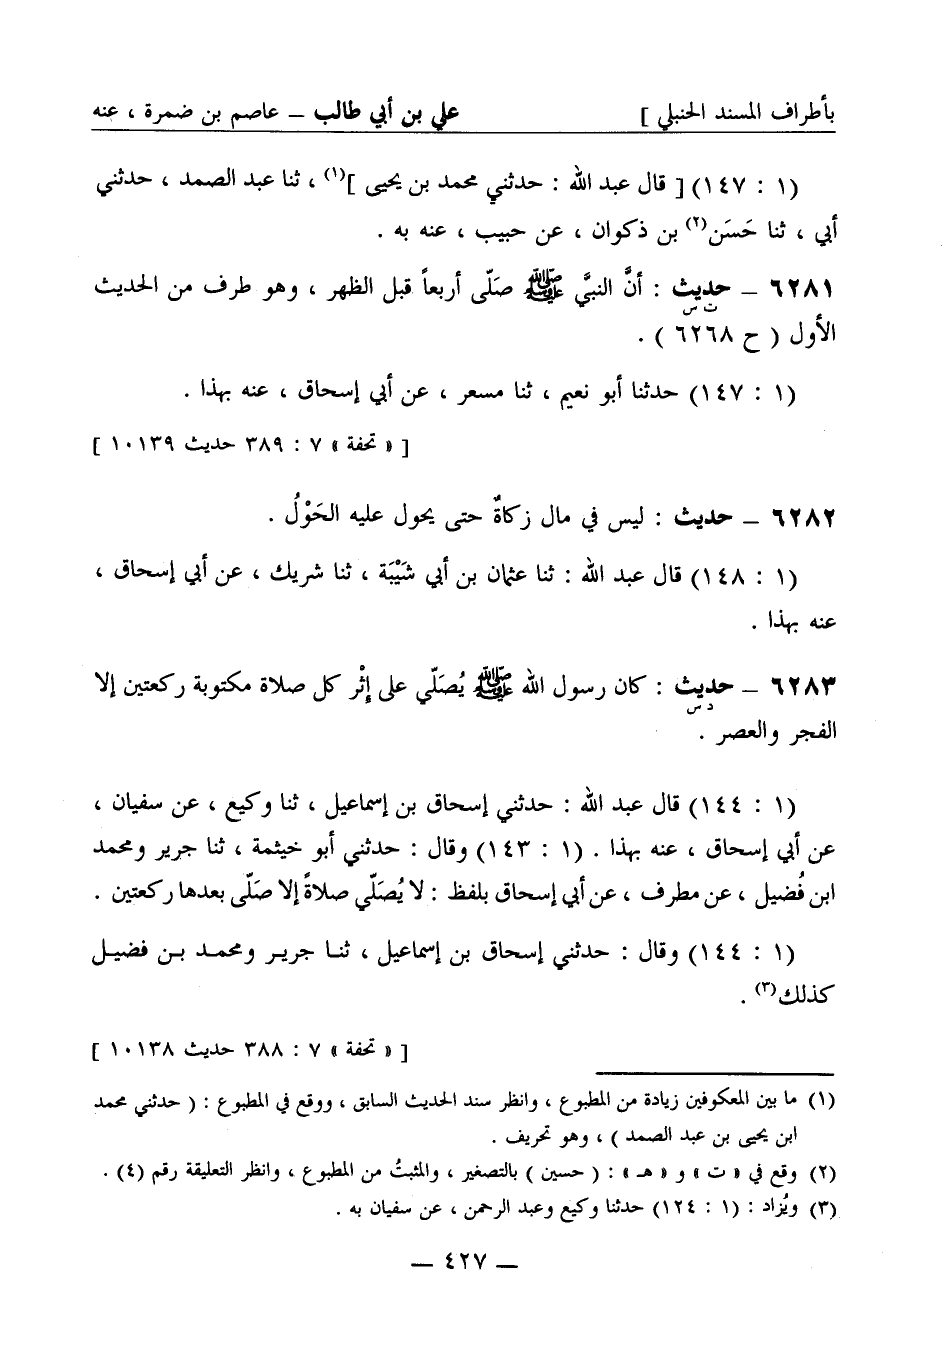 بأطراف المسند الحنبلي ] علي بن أبي طالب – عاصم بن ضمرة ، عنه
(١ : ١٤٧) [ قال عبد الله : حدثني محمد بن يحيى ](١) ، ثنا عبد الصمد ، حدثني
أبي ، ثنا حَسَن(٢) بن ذكوان ، عن حبيب ، عنه به .
٦٢٨١ – حديث : أنَّ النبيَّ ﷺ صَلّى أربعاً قبل الظهر ، وهو طرف من الحديث
ت س
الأول ( ح ٦٢٦٨ ) .
(١ : ١٤٧) حدثنا أبو نعيم ، ثنا مسعر ، عن أبي إسحاق ، عنه بهذا .
[ « تحفة » ٧ : ٣٨٩ حديث ١٠١٣٩ ]
٦٢٨٢ – حديث : ليس في مال زكاةٌ حتى يحول عليه الحَوْلُ .
(١ : ١٤٨) قال عبد الله : ثنا عثمان بن أبي شَيْبَة ، ثنا شريك ، عن أبي إسحاق ،
عنه بهذا .
٦٢٨٣ – حديث : كان رسول الله ﷺ يُصَلّي على إثْر كل صلاة مكتوبة ركعتين إلا
د س
الفجر والعصر .
(١ : ١٤٤) قال عبد الله : حدثني إسحاق بن إسماعيل ، ثنا وكيع ، عن سفيان ،
عن أبي إسحاق ، عنه بهذا . (١ : ١٤٣) وقال : حدثني أبو خيثمة ، ثنا جرير ومحمد
ابن فُضيل ، عن مطرف ، عن أبي إسحاق بلفظ : لا يُصَلّي صلاةً إلا صَلّى بعدها ركعتين .
(١ : ١٤٤) وقال : حدثني إسحاق بن إسماعيل ، ثنا جرير ومحمد بن فضيل
كذلك(٣) .
[ « تحفة » ٧ : ٣٨٨ حديث ١٠١٣٨ ]
(١) ما بين المعكوفين زيادة من المطبوع ، وانظر سند الحديث السابق ، ووقع في المطبوع : ( حدثني محمد
ابن يحيى بن عبد الصمد ) ، وهو تحريف .
(٢) وقع في « ت » و « هـ » : ( حسين ) بالتصغير ، والمثبتُ من المطبوع ، وانظر التعليقة رقم (٤) .
(٣) ويُزاد : (١ : ١٢٤) حدثنا وكيع وعبد الرحمن ، عن سفيان به .
– ٤٢٧ –